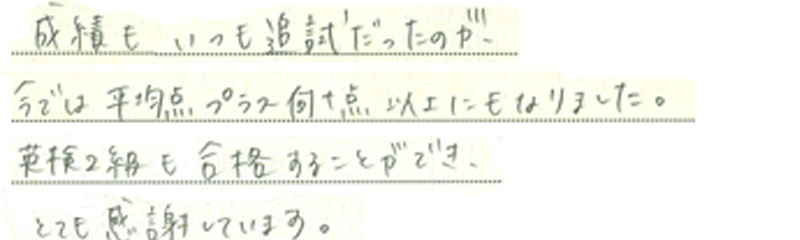 成績も いつも追試だったのが、
今では 平均点 プラス 何十点 以上にもなりました。
英検2級も合格することができ、
とても感謝しています。